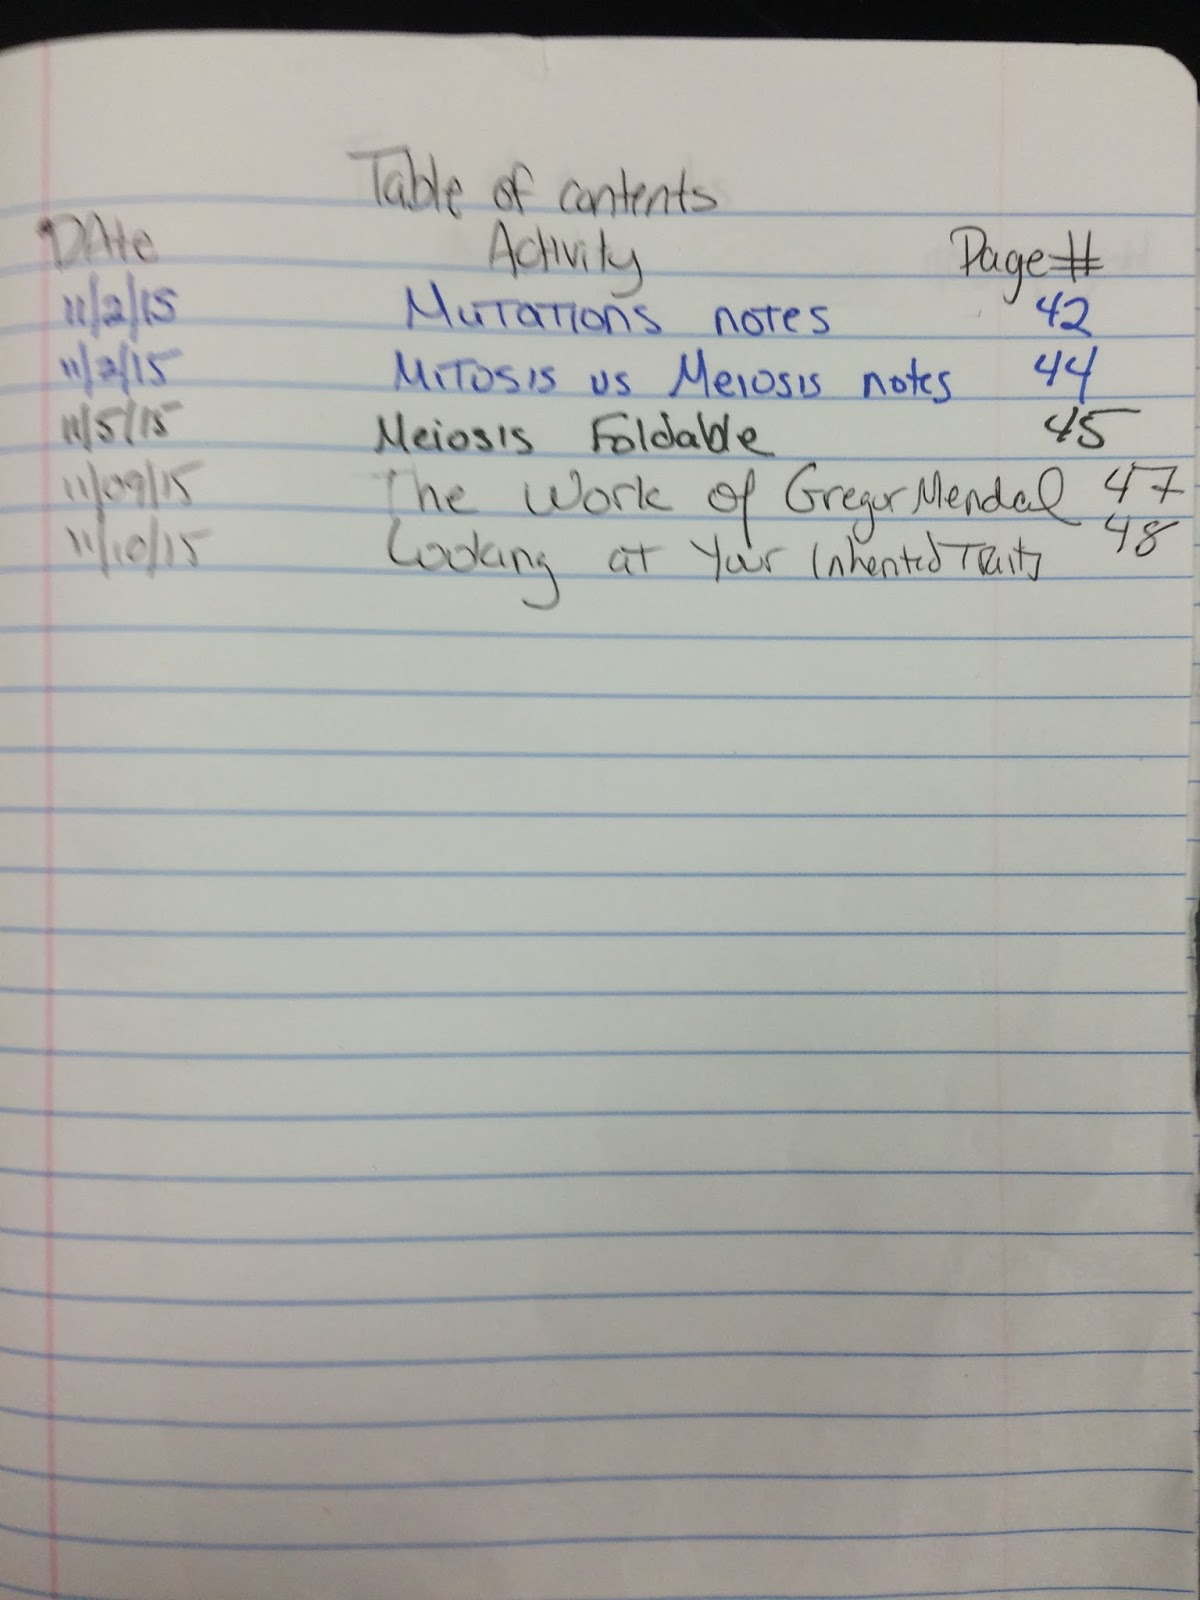 Table of contents
DAte Activity Page#
11/2/15 Mutations notes 42
11/2/15 Mitosis vs Meiosis notes 44
11/5/15 Meiosis Foldable 45
11/09/15 The Work of Gregor Mendal 47
11/10/15 Looking at Your Inherited Traits 48